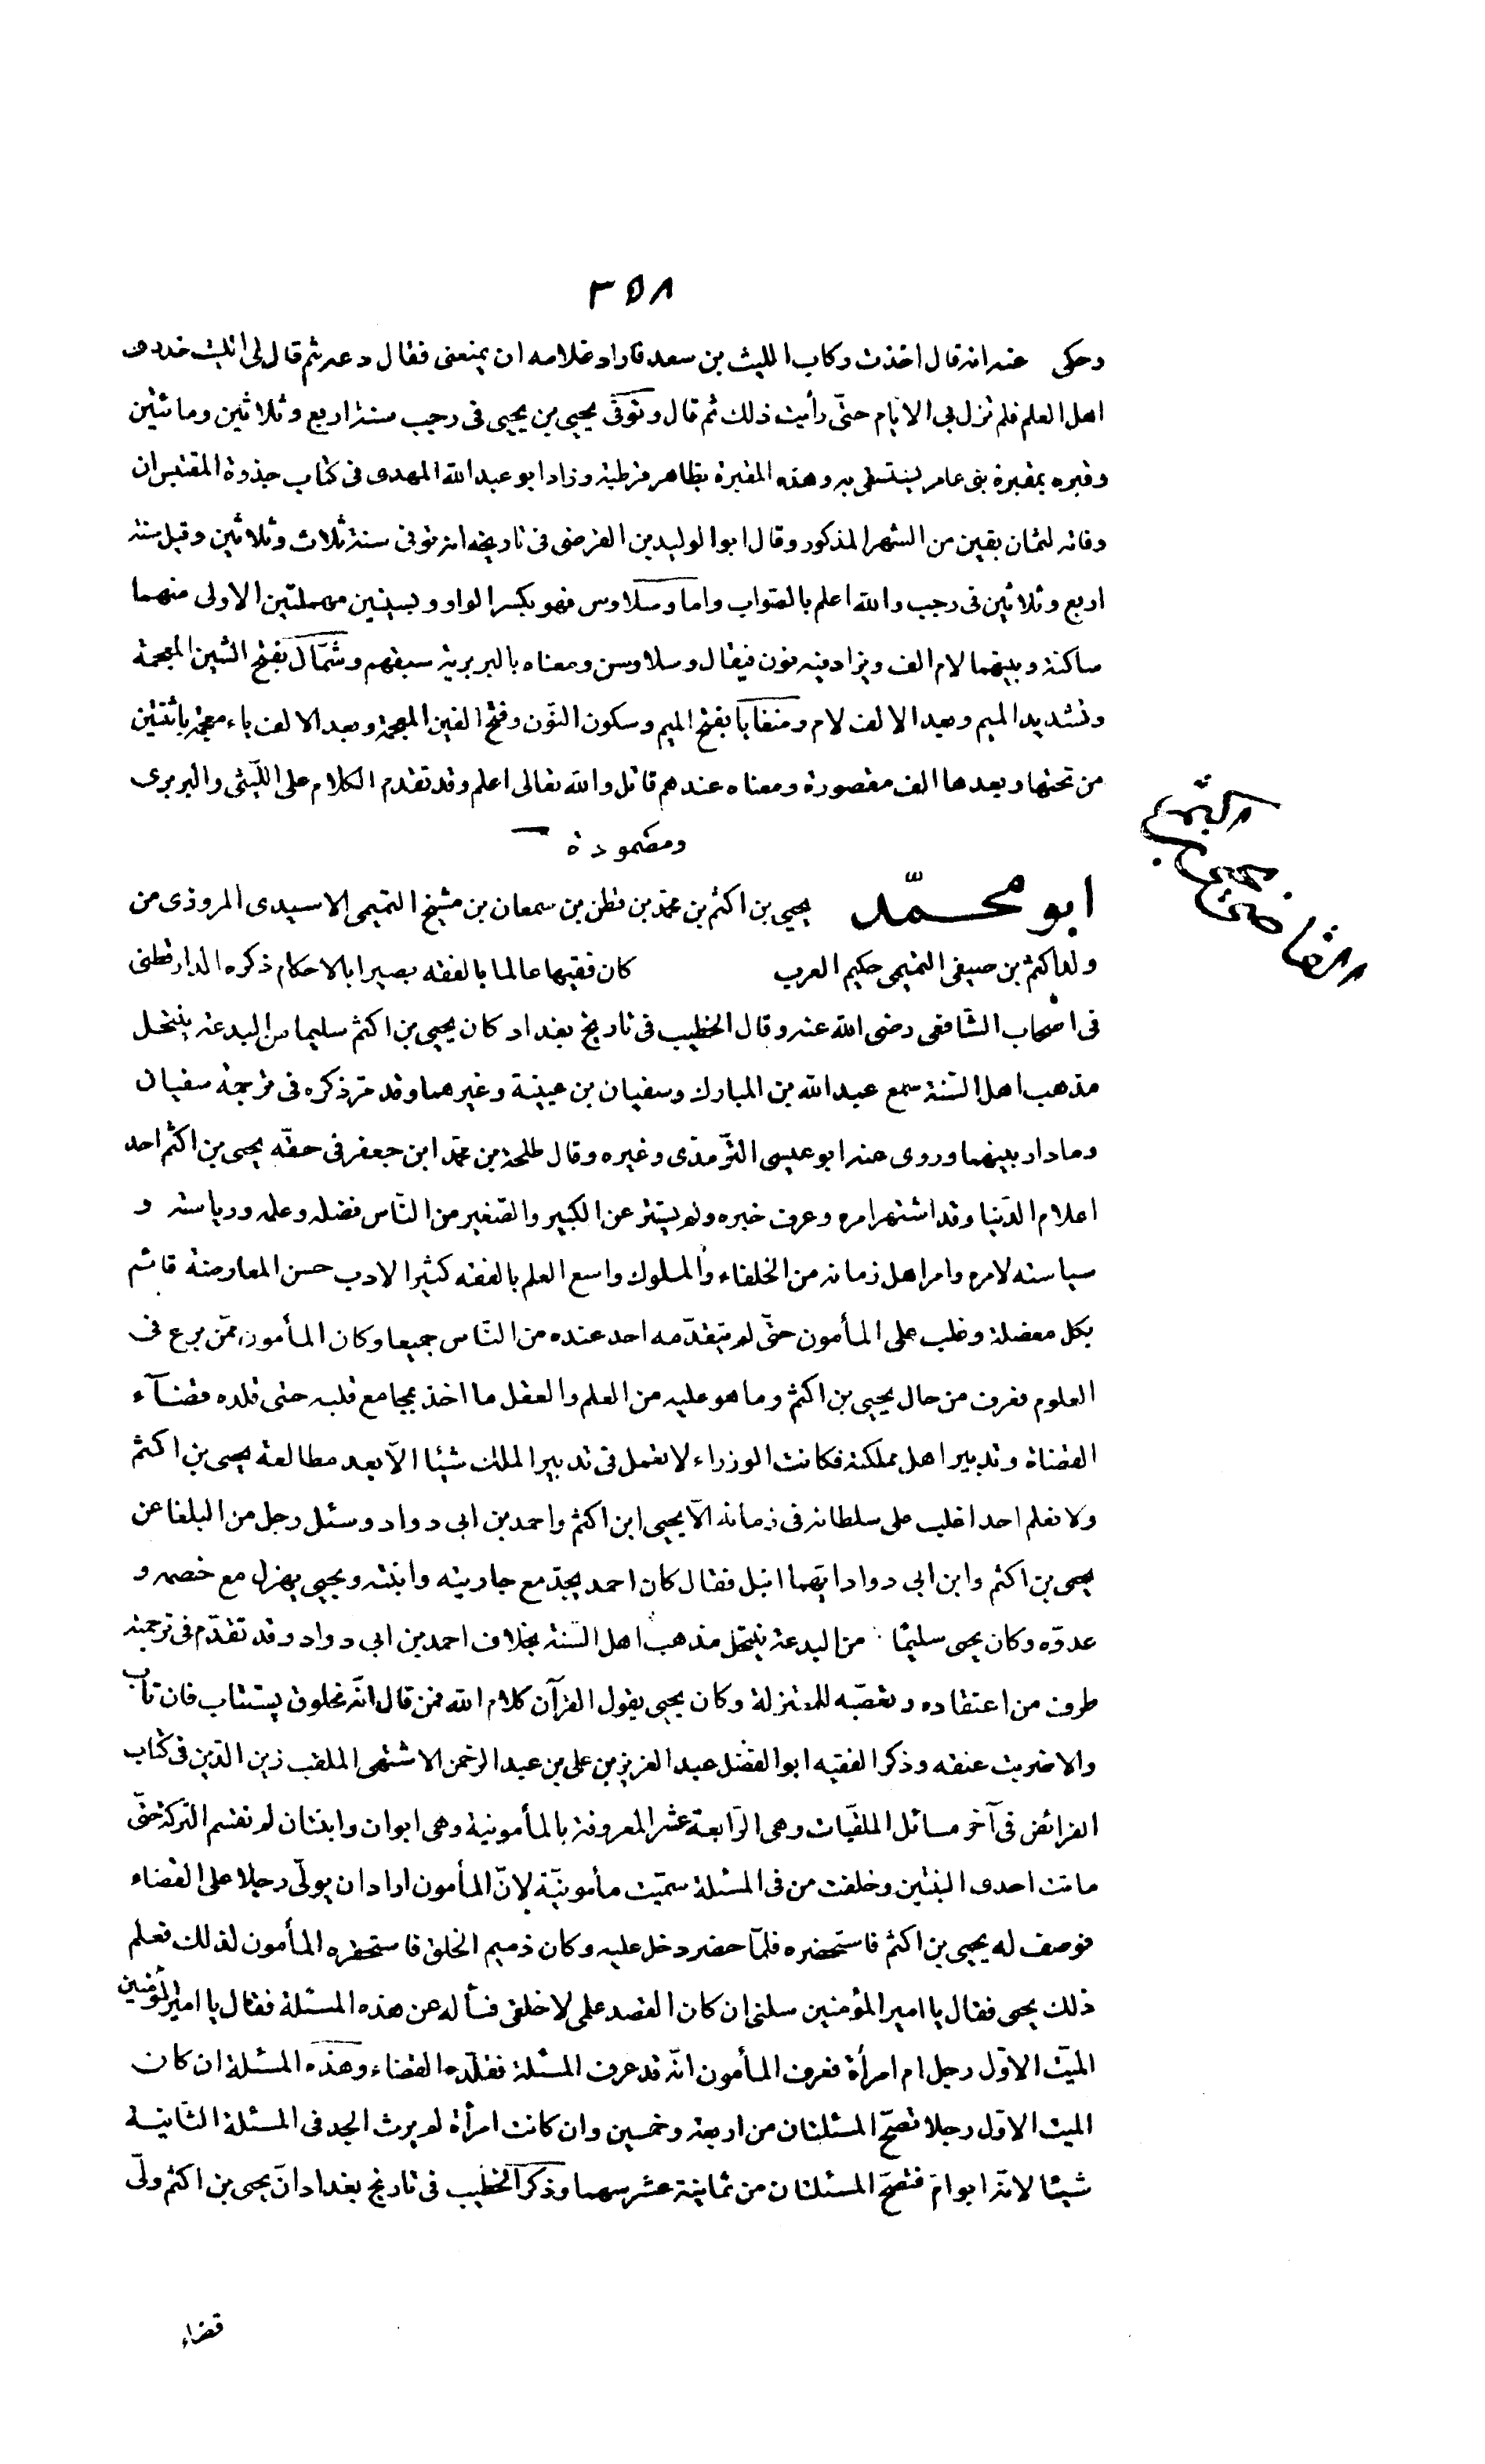 ٣٥٨
وحكى عنه انه قال اخذت ركاب الليث بن سعد فاراد غلامه ان يمنعنى فقال دعه ثم قال لى الليث خدمك
اهل العلم فلم تزل بى الايام حتّى رأيت ذلك ثم قال وتوفّى يحيى بن يحيى فى رجب سنة اربع وثلاثين ومائتين
وقبره بمقبرة بنى عامر يستسقى به وهذه المقبرة بظاهر قرطبة وزاد ابو عبد الله الحميدى فى كتاب جذوة المقتبس ان
وفاته لثمان بقين من الشهر المذكور وقال ابو الوليد بن الفرضى فى تاريخه انه توفى سنة ثلاث وثلاثين وقيل سنة
اربع وثلاثين فى رجب والله اعلم بالصّواب واما وسلاوس فهو بكسر الواو وبسينين مهملتين الاولى منهما
ساكنة وبينهما لام الف ويزاد فيه نون فيقال وسلاوسن ومعناه بالبربرية سيفهم وشمّال بفتح الشين المعجمة
وتشديد الميم وبعد الالف لام ومنغايا بفتح الميم وسكون النّون وفتح الغين المعجمة وبعد الالف ياء معجمة باثنتين
من تحتها وبعدها الف مقصورة ومعناه عندهم قاتل والله تعالى اعلم وقد تقدم الكلام على اللّيثى والبربرى
ومصمودة
القاضى يحيى بن اكثم
ابو محمّد يحيى بن اكثم بن محمّد بن قطن بن سمعان بن مشنج التميمى الاسيدى المروزى من
ولد اكثم بن صيفى التميمى حكيم العرب كان فقيها عالما بالفقه بصيرا بالاحكام ذكره الدارقطنى
فى اصحاب الشّافعى رضى الله عنه وقال الخطيب فى تاريخ بغداد كان يحيى بن اكثم سليما من البدعة ينتحل
مذهب اهل السّنة سمع عبد الله بن المبارك وسفيان بن عيينة وغيرهما وقد مرّ ذكره فى ترجمة سفيان
وما دار بينهما وروى عنه ابو عيسى التّرمذى وغيره وقال طلحة بن محمّد ابن جعفر فى حقّه يحيى بن اكثم احد
اعلام الدّنيا وقد اشتهر امره وعرف خبره ولم يستتر عن الكبير والصّغير من النّاس فضله وعلمه ورياسته و
سياسته لامره وامر اهل زمانه من الخلفاء والملوك واسع العلم بالفقه كثير الادب حسن المعارضة قائم
بكل معضلة وغلب على المأمون حتّى لم يتقدّمه احد عنده من النّاس جميعا وكان المأمون ممّن برع فى
العلوم فعرف من حال يحيى بن اكثم وما هو عليه من العلم والعقل ما اخذ بمجامع قلبه حتى قلده قضآء
القضاة وتدبير اهل مملكته فكانت الوزراء لا تعمل فى تدبير الملك شيئا الاّ بعد مطالعة يحيى بن اكثم
ولا نعلم احدا غلب على سلطانه فى زمانه الاّ يحيى ابن اكثم واحمد بن ابى دواد وسئل رجل من البلغا عن
يحيى بن اكثم وابن ابى دواد ايّهما انبل فقال كان احمد يجدّ مع جاريته وابنته ويحيى يهزل مع خصمه و
عدوّه وكان يحيى سليمًا من البدعة ينتحل مذهب اهل السّنة بخلاف احمد بن ابى دواد وقد تقدّم فى ترجمته
طرف من اعتقاده وتعصّبه للمعتزلة وكان يحيى يقول القرآن كلام الله فمن قال انّه مخلوق يستتاب فان تاب
والا ضربت عنقه وذكر الفقيه ابو الفضل عبد العزيز بن على بن عبد الرحمن الاشنهى الملقب زين الدّين فى كتاب
الفرائض فى آخر مسائل الملقّبات وهى الرّابعة عشر المعروفة بالمأمونية وهى ابوان وابنتان لم تقسم التّركة حتّى
ماتت احدى البنتين وخلفت من فى المسئلة سمّيت مأمونيّة لانّ المأمون اراد ان يولّى رجلا على القضاء
فوصف له يحيى بن اكثم فاستحضره فلمّا حضر دخل عليه وكان ذميم الخلق فاستحقره المأمون لذلك فعلم
ذلك يحيى فقال يا امير المؤمنين سلنى ان كان القصد علمى لا خلقى فسأله عن هذه المسئلة فقال يا امير المؤمنين
الميّت الاوّل رجل ام امرأة فعرف المأمون انّه قد عرف المسئلة فقلّده القضاء وهذه المسئلة ان كان
الميت الاوّل رجلا تصحّ المسئلتان من اربعة وخمسين وان كانت امرأة لم يرث الجد فى المسئلة الثّانية
شيئا لانّه ابو امّ فتصحّ المسئلتان من ثمانية عشر سهما وذكر الخطيب فى تاريخ بغداد انّ يحيى بن اكثم ولّى
قضاء